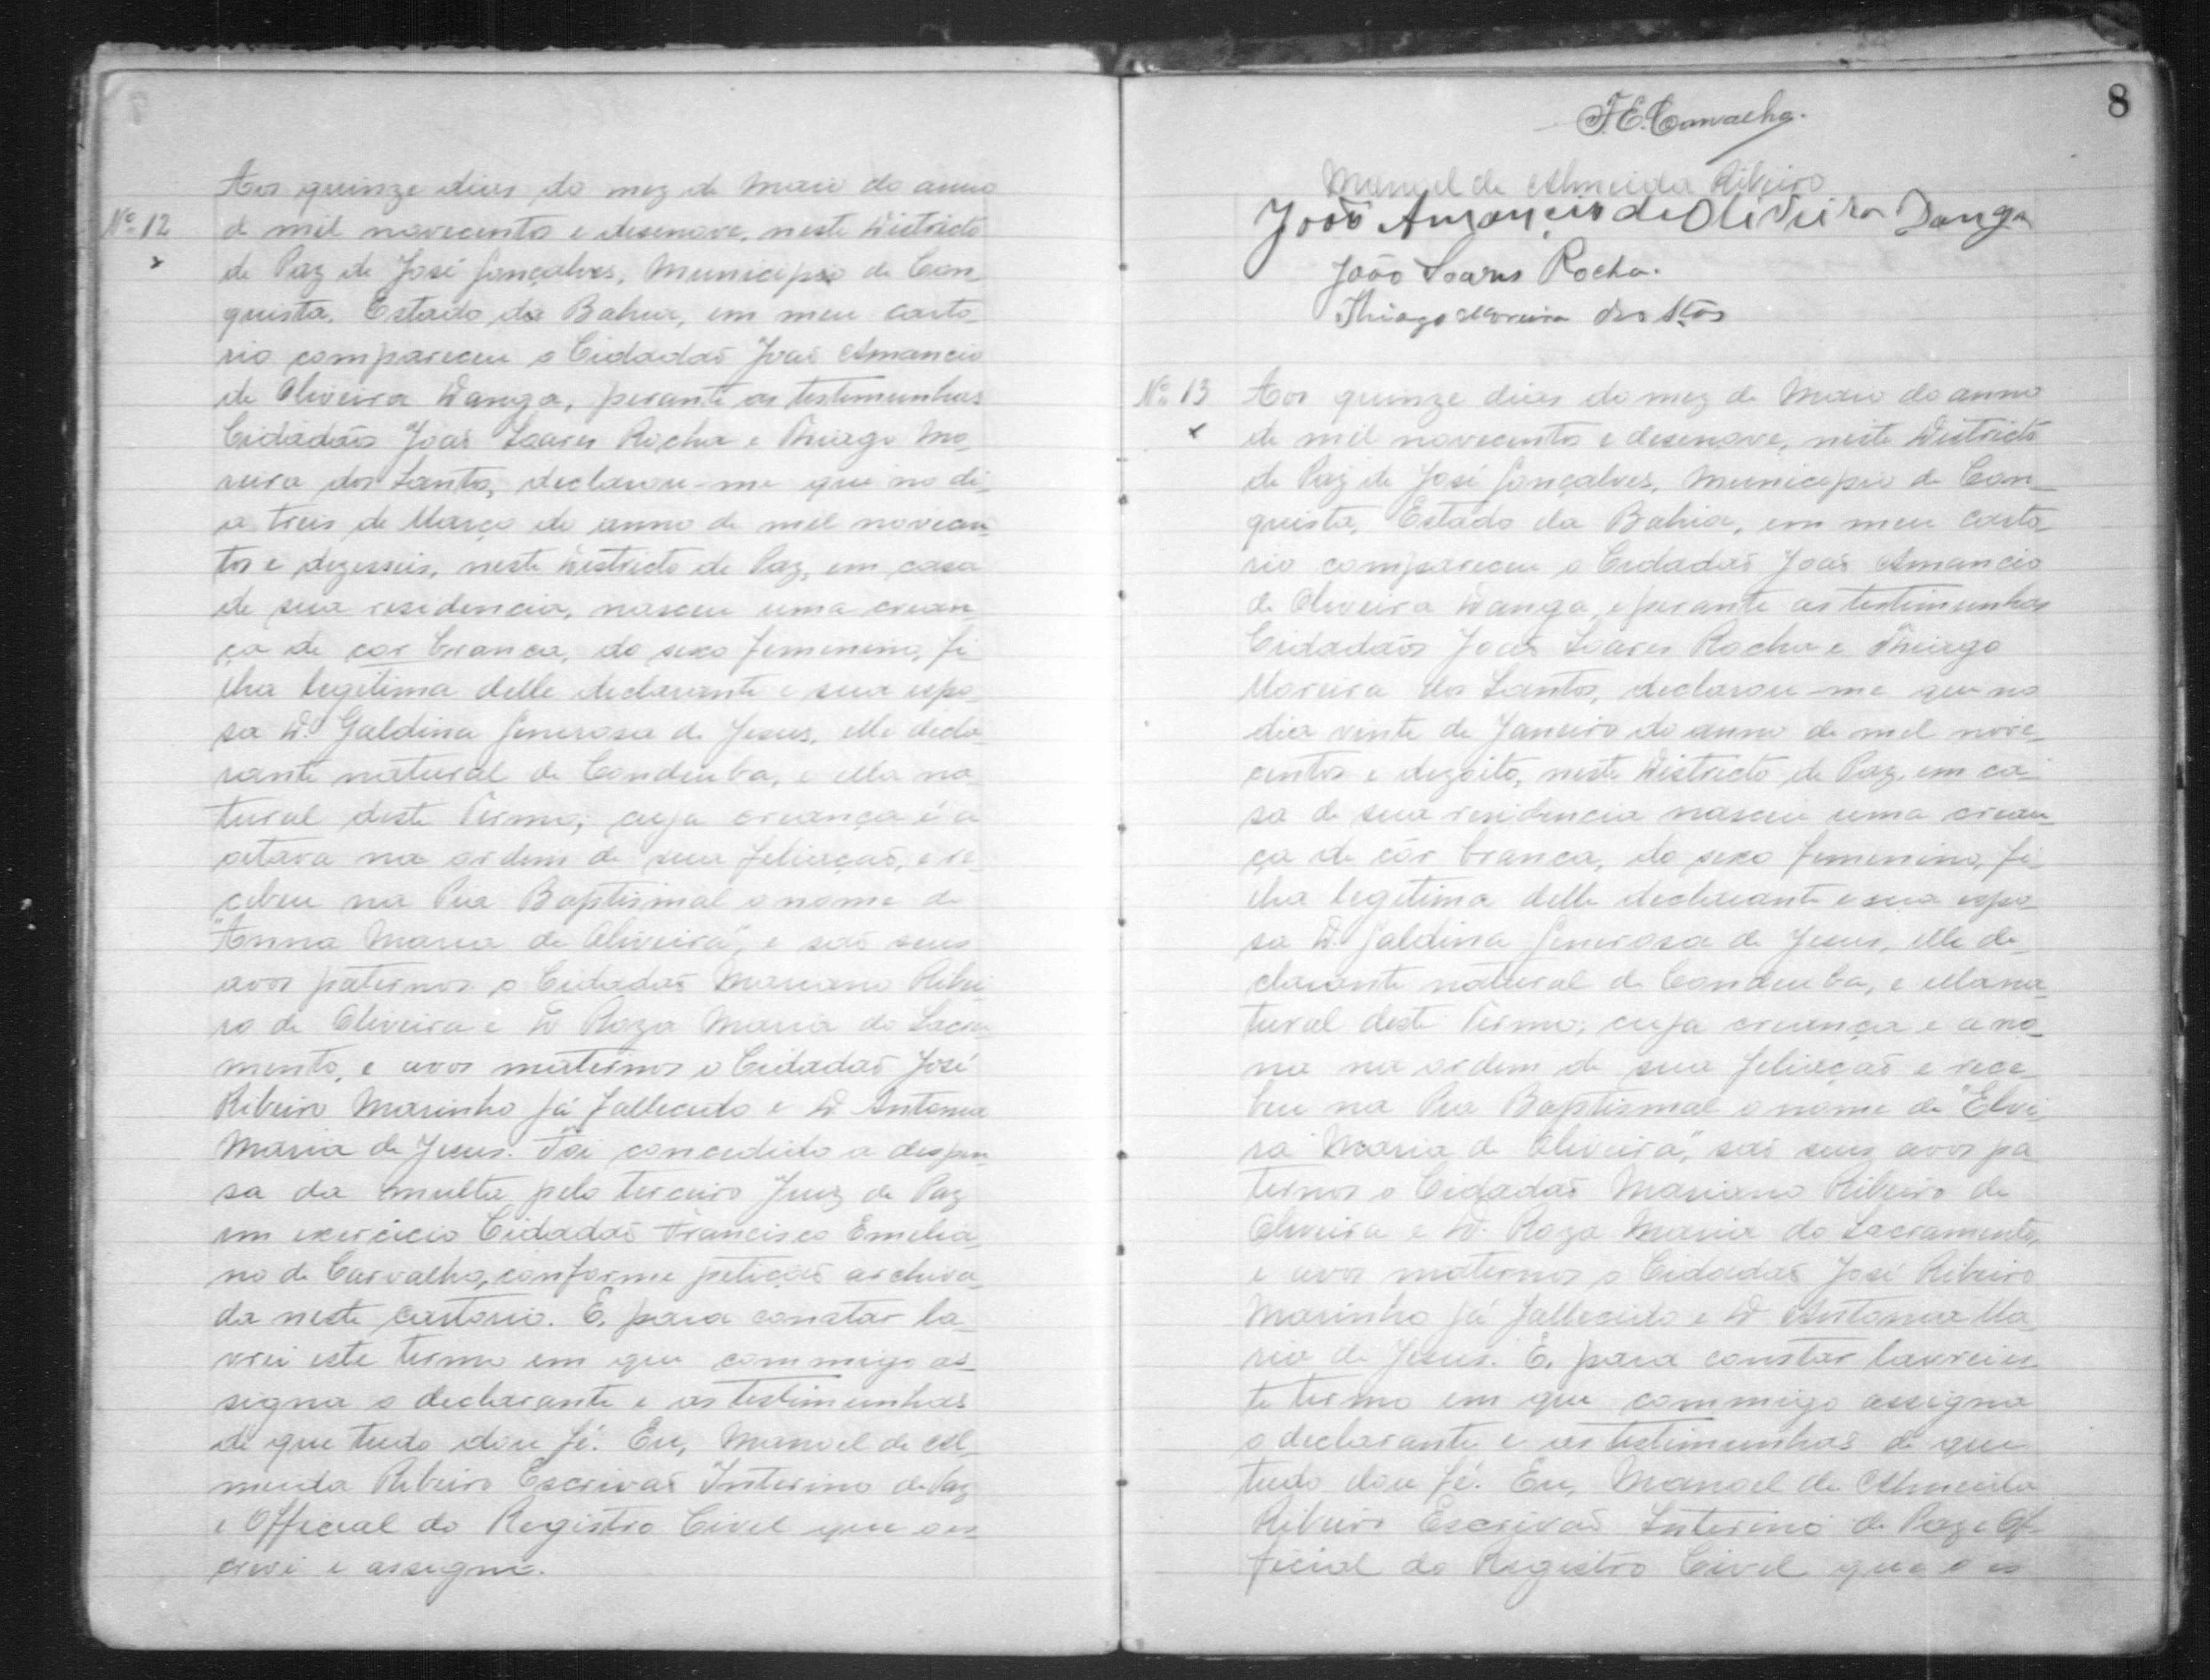 Aos quinze dias do mez de Maio do anno
Nº 12 de mil novecentos e desenove, neste Districto
de Paz de José Gonçalves, Municipio de Con_
quista, Estado da Bahia, em meu carto_
rio compareceu o Cidadaõ Joaõ Amancio
de Oliveira Danga, perante as testemunhas
Cidadãos Joaõ Soares Rocha e Thiago Mo_
reira dos Santos, declarou-me que no di_
a treis de Março do anno de mil novecen_
tos e dezesseis, neste Districto de Paz, em casa
de sua residencia, nasceu uma crean_
ça de cor branca, do sexo femenino, fi_
lha legitima delle declarante e sua espo_
sa D. Galdina Generosa de Jesus, elle decla_
rante natural de Condeuba, e ella na_
tural deste Termo; cuja creança é a
oitava na ordem de sua filiaçaõ, e re_
cebeu na Pia Baptismal o nome de
"Anna Maria de Oliveira", e saõ seus
avos paternos o Cidadaõ Mariano Ribei_
ro de Oliveira e D Roza Maria do Sacra_
mento, e avos maternos o Cidadaõ José
Ribeiro Marinho já fallecido e D Antonia
Maria de Jesus. Foi concedido a dispen_
sa da multa pelo terceiro Juiz de Paz
em exercicio Cidadaõ Francisco Emilia_
no de Carvalho, conforme petiçaõ archiva_
da neste cartorio. E, para constar la_
vrei este termo em que commigo as_
signa o declarante e as testimunhas
de que tudo dou fé. Eu, Manoel de Al_
meida Ribeiro Escrivaõ Interino de Paz
e Official do Registro Civil que o es_
crevi e assigno.
8
F. E. Carvalho.
Manoel de Almeida Ribeiro
Joaõ Amancio de Oliveira Danga
João Soares Rocha.
Thiago Moreira dos Stos
Nº 13 Aos quinze dias do mez de Maio do anno
de mil novecentos e desenove, neste Districto
de Paz de José Gonçalves, Municipio de Con_
quista, Estado da Bahia, em meu carto_
rio compareceu o Cidadaõ Joaõ Amancio
de Oliveira Danga, e perante as testimunhas
Cidadãos Joaõ Soares Rocha e Thiago
Moreira dos Santos, declarou-me que no
dia vinte de Janeiro do anno de mil nove_
centos e dezoito, neste Districto de Paz, em ca_
sa de sua residencia nasceu uma crean_
ça de côr branca, do sexo femenino, fi_
lha legitima delle declarante e sua espo_
sa D. Galdina Generosa de Jesus, elle de_
clarante natural de Condeuba, e ella na_
tural deste Termo; cuja creança e a no_
na na ordem de sua filiaçaõ e rece_
beu na Pia Baptismal o nome de "Elvi_
ra Maria de Oliveira", saõ seus avos pa_
ternos o Cidadaõ Mariano Ribeiro de
Oliveira e D. Roza Maria do Sacramento,
e avos maternos o Cidadaõ José Ribeiro
Marinho já fallecido e D Antonia Ma_
ria de Jesus. E, para constar lavrei es_
te termo em que commigo assigna
o declarante e as testimunhas de que
tudo dou fé. Eu, Manoel de Almeida
Ribeiro Escrivaõ Interino de Paz e Of_
ficial do Registro Civil que o es